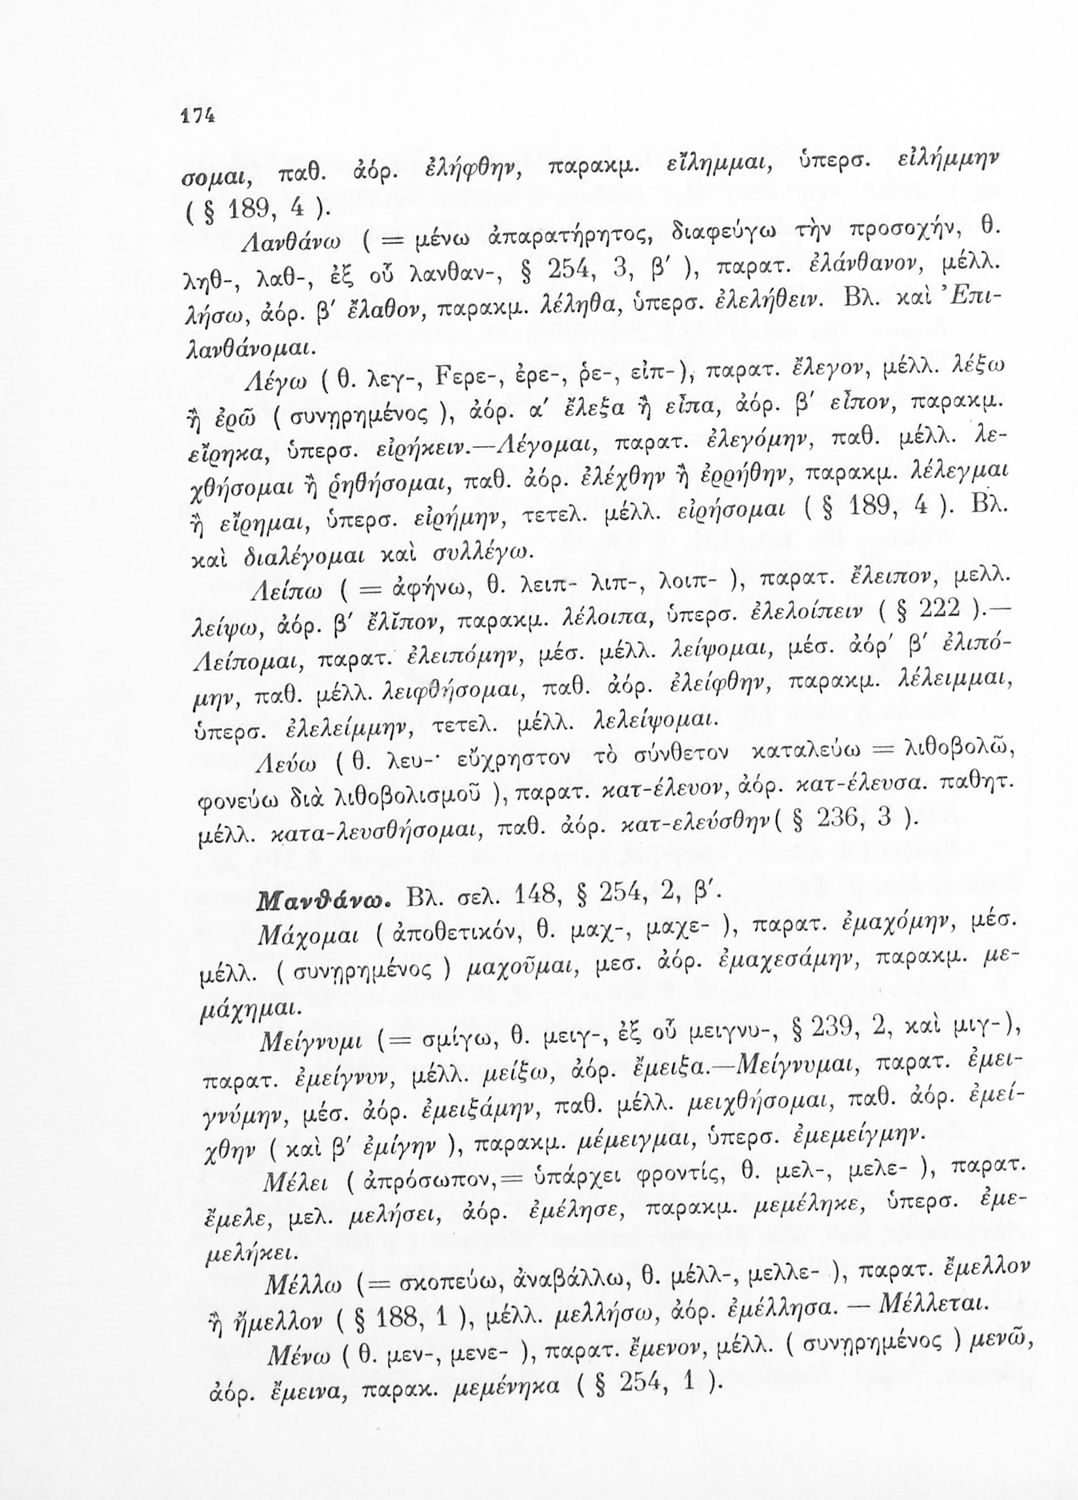 174
σομαι, παθ. ἀόρ. ἐλήφθην, παρακμ. εἴλημμαι, ὑπερσ. εἰλήμμην
( § 189, 4 ).
Λανθάνω ( = μένω ἀπαρατήρητος, διαφεύγω τὴν προσοχήν, θ.
ληθ-, λαθ-, ἐξ οὗ λανθαν-, § 254, 3, β′ ), παρατ. ἐλάνθανον, μέλλ.
λήσω, ἀόρ. β′ ἔλαθον, παρακμ. λέληθα, ὑπερσ. ἐλελήθειν. Βλ. καὶ Ἐπι-
λανθάνομαι.
Λέγω ( θ. λεγ-, Fερε-, ἐρε-, ῥε-, εἰπ-), παρατ. ἔλεγον, μέλλ. λέξω
ἢ ἐρῶ ( συνῃρημένος ), ἀόρ. α′ ἔλεξα ἢ εἶπα, ἀόρ. β′ εἶπον, παρακμ.
εἴρηκα, ὑπερσ. εἰρήκειν.—Λέγομαι, παρατ. ἐλεγόμην, παθ. μέλλ. λε-
χθήσομαι ἢ ῥηθήσομαι, παθ. ἀόρ. ἐλέχθην ἢ ἐρρήθην, παρακμ. λέλεγμαι
ἢ εἴρημαι, ὑπερσ. εἰρήμην, τετελ. μέλλ. εἰρήσομαι ( § 189, 4 ). Βλ.
καὶ διαλέγομαι καὶ συλλέγω.
Λείπω ( = ἀφήνω, θ. λειπ- λιπ-, λοιπ- ), παρατ. ἔλειπον, μελλ.
λείψω, ἀόρ. β′ ἔλῐπον, παρακμ. λέλοιπα, ὑπερσ. ἐλελοίπειν ( § 222 ).—
Λείπομαι, παρατ. ἐλειπόμην, μέσ. μέλλ. λείψομαι, μέσ. ἀόρ′ β′ ἐλιπό-
μην, παθ. μέλλ. λειφθήσομαι, παθ. ἀόρ. ἐλείφθην, παρακμ. λέλειμμαι,
ὑπερσ. ἐλελείμμην, τετελ. μέλλ. λελείψομαι.
Λεύω ( θ. λευ-· εὔχρηστον τὸ σύνθετον καταλεύω = λιθοβολῶ,
φονεύω διὰ λιθοβολισμοῦ ), παρατ. κατ-έλευον, ἀόρ. κατ-έλευσα. παθητ.
μέλλ. κατα-λευσθήσομαι, παθ. ἀόρ. κατ-ελεύσθην( § 236, 3 ).
Μανθάνω. Βλ. σελ. 148, § 254, 2, β′.
Μάχομαι ( ἀποθετικόν, θ. μαχ-, μαχε- ), παρατ. ἐμαχόμην, μέσ.
μέλλ. ( συνῃρημένος ) μαχοῦμαι, μεσ. ἀόρ. ἐμαχεσάμην, παρακμ. με-
μάχημαι.
Μείγνυμι (= σμίγω, θ. μειγ-, ἐξ οὗ μειγνυ-, § 239, 2, καὶ μιγ-),
παρατ. ἐμείγνυν, μέλλ. μείξω, ἀόρ. ἔμειξα.—Μείγνυμαι, παρατ. ἐμει-
γνύμην, μέσ. ἀόρ. ἐμειξάμην, παθ. μέλλ. μειχθήσομαι, παθ. ἀόρ. ἐμεί-
χθην ( καὶ β′ ἐμίγην ), παρακμ. μέμειγμαι, ὑπερσ. ἐμεμείγμην.
Μέλει ( ἀπρόσωπον,= ὑπάρχει φροντίς, θ. μελ-, μελε- ), παρατ.
ἔμελε, μελ. μελήσει, ἀόρ. ἐμέλησε, παρακμ. μεμέληκε, ὑπερσ. ἐμε-
μελήκει.
Μέλλω (= σκοπεύω, ἀναβάλλω, θ. μέλλ-, μελλε- ), παρατ. ἔμελλον
ἢ ἤμελλον ( § 188, 1 ), μέλλ. μελλήσω, ἀόρ. ἐμέλλησα. — Μέλλεται.
Μένω ( θ. μεν-, μενε- ), παρατ. ἔμενον, μέλλ. ( συνῃρημένος ) μενῶ,
ἀόρ. ἔμεινα, παρακ. μεμένηκα ( § 254, 1 ).